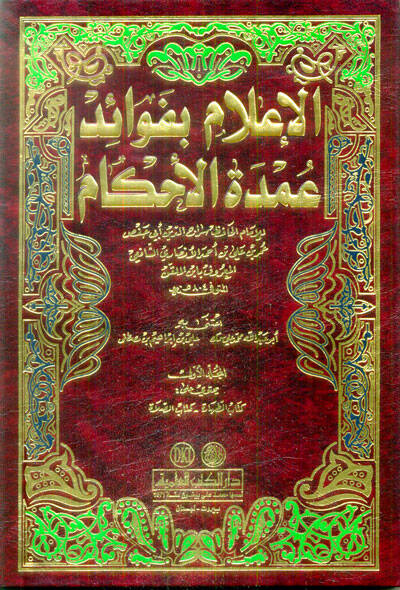 الإعلام بفوائد
عمدة الأحكام
للإمام الحافظ سراج الدين أبي حفص
عمر بن علي بن أحمد الأنصاري الشافعي
المعروف بابن الملقن
المتوفى ٨٠٤ هـ
اعتنى به
علي بن إبراهيم بن مصطفى
المجلد الأول
يحتوي على:
كتاب الطهارة - كتاب الصلاة
دار الكتب العلمية
بيروت - لبنان